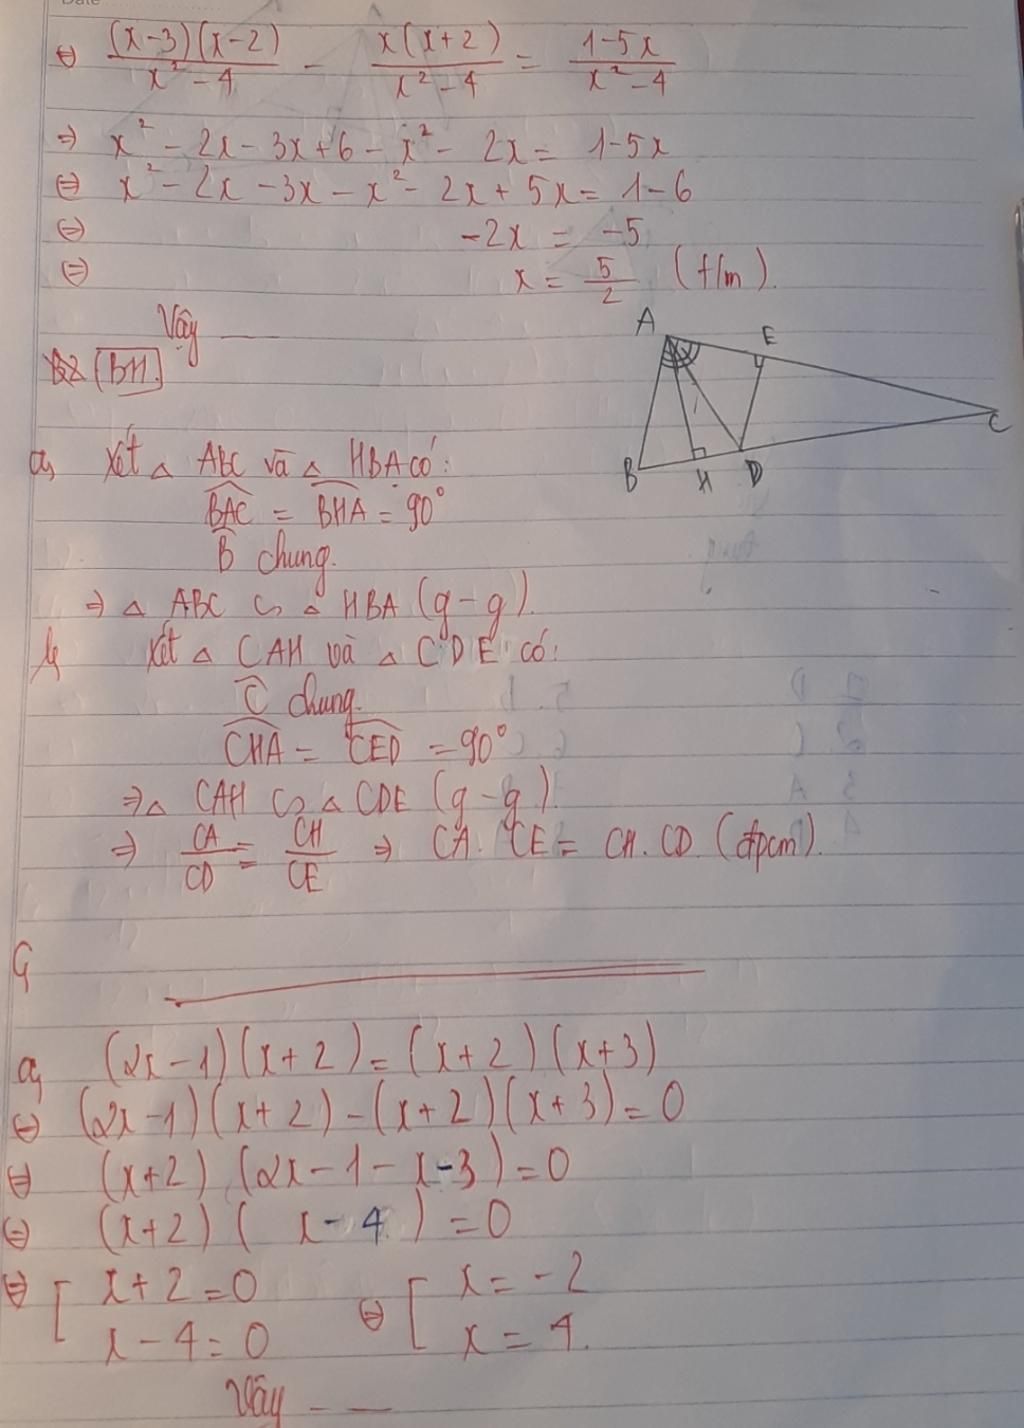 Date
⇔ (x-3)(x-2)/x²-4 - x(x+2)/x²-4 = 1-5x/x²-4
⇒ x² - 2x - 3x + 6 - x² - 2x = 1-5x
⇔ x² - 2x - 3x - x² - 2x + 5x = 1-6
⇔ -2x = -5
⇔ x = 5/2 (t/m).
Vậy
(BH)
A E
B H D C
a, Xét △ ABC và △ HBA có:
BAC = BHA = 90°
B chung.
⇒ △ ABC ∽ △ HBA (g-g).
b, Xét △ CAH và △ CDE có:
C chung.
CHA = CED = 90°
⇒ △ CAH ∽ △ CDE (g-g).
⇒ CA/CD = CH/CE ⇒ CA. CE = CH. CD (đpcm).
a, (2x-1)(x+2) = (x+2)(x+3)
⇔ (2x-1)(x+2) - (x+2)(x+3) = 0
⇔ (x+2) (2x-1-x-3) = 0
⇔ (x+2) ( x-4 ) = 0
⇔ [ x+2=0 ⇔ [ x = -2
x-4=0 x = 4.
Vậy